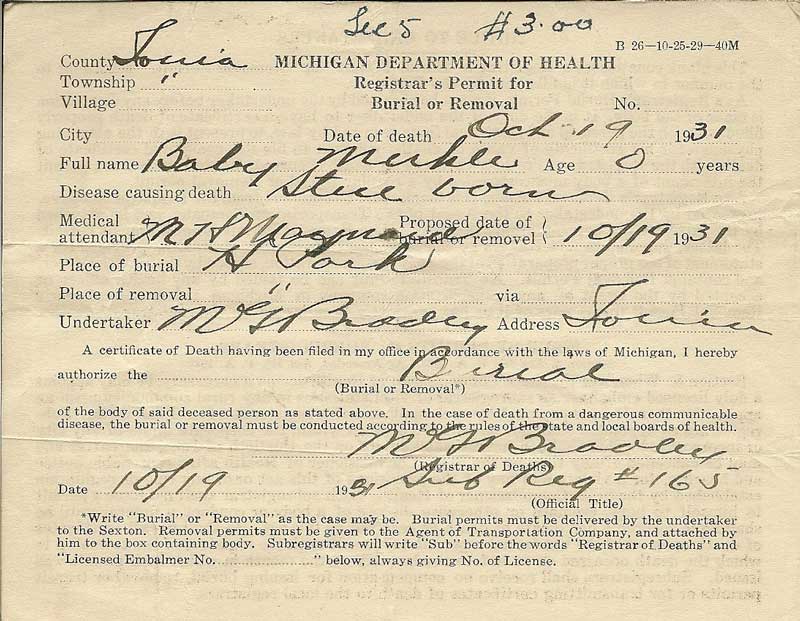 Sec 5 $3.00
B 26—10-25-29—40M
County Ionia MICHIGAN DEPARTMENT OF HEALTH
Township " Registrar's Permit for
Village Burial or Removal No.
City Date of death Oct 19 1931
Full name Baby Merkle Age 0 years
Disease causing death Still born
Medical attendant Proposed date of burial or removel 10/19 1931
Place of burial H Park
Place of removal " via
Undertaker Bradley Address Ionia
A certificate of Death having been filed in my office in accordance with the laws of Michigan, I hereby
authorize the Burial
(Burial or Removal*)
of the body of said deceased person as stated above. In the case of death from a dangerous communicable
disease, the burial or removal must be conducted according to the rules of the state and local boards of health.
Bradley
(Registrar of Deaths)
Date 10/19 1931 Sub Reg # 165
(Official Title)
*Write "Burial" or "Removal" as the case may be. Burial permits must be delivered by the undertaker
to the Sexton. Removal permits must be given to the Agent of Transportation Company, and attached by
him to the box containing body. Subregistrars will write "Sub" before the words "Registrar of Deaths" and
"Licensed Embalmer No. " below, always giving No. of License.